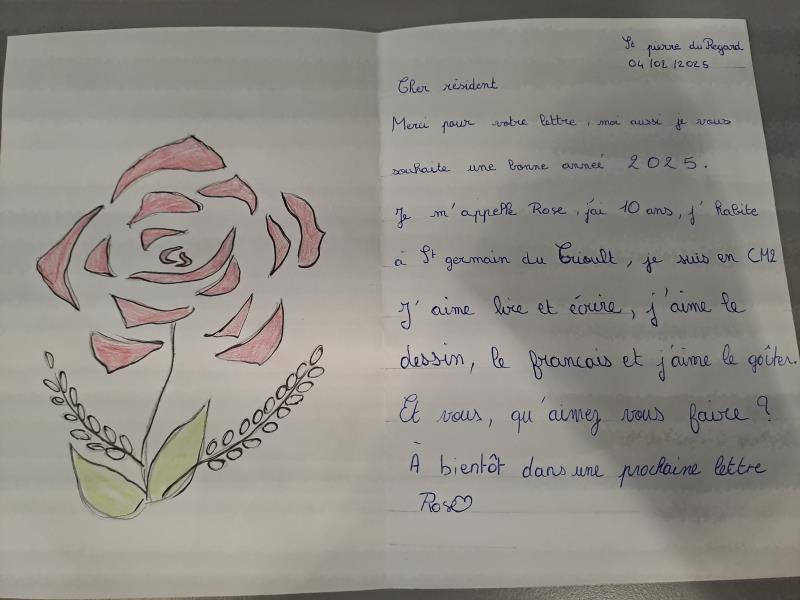 St pierre du Regard
04/02/2025
Cher résident
Merci pour votre lettre, moi aussi je vous
souhaite une bonne anneé 2025.
Je m'appelle Rose, j'ai 10 ans, j'habite
à St germain du Crioult, je suis en CM2
J'aime lire et écrire, j'aime le
dessin, le francais et j'aime le goûter.
Et vous, qu'aimez vous faire ?
À bientôt dans une prochaine lettre
Rose♡